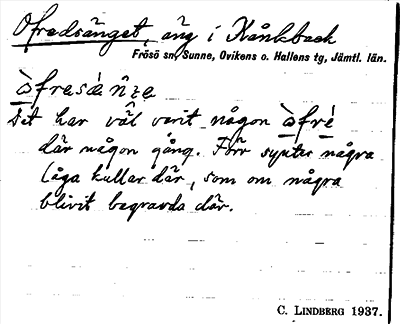 Ofredsänget, äng i Kånkback
Frösö sn, Sunne, Ovikens o. Hallens tg, Jämtl. län.
Det har väl varit någon
där någon gång. Förr syntes några
låga kullar där, som om några
blivit begravda där.
C. LINDBERG 1937.